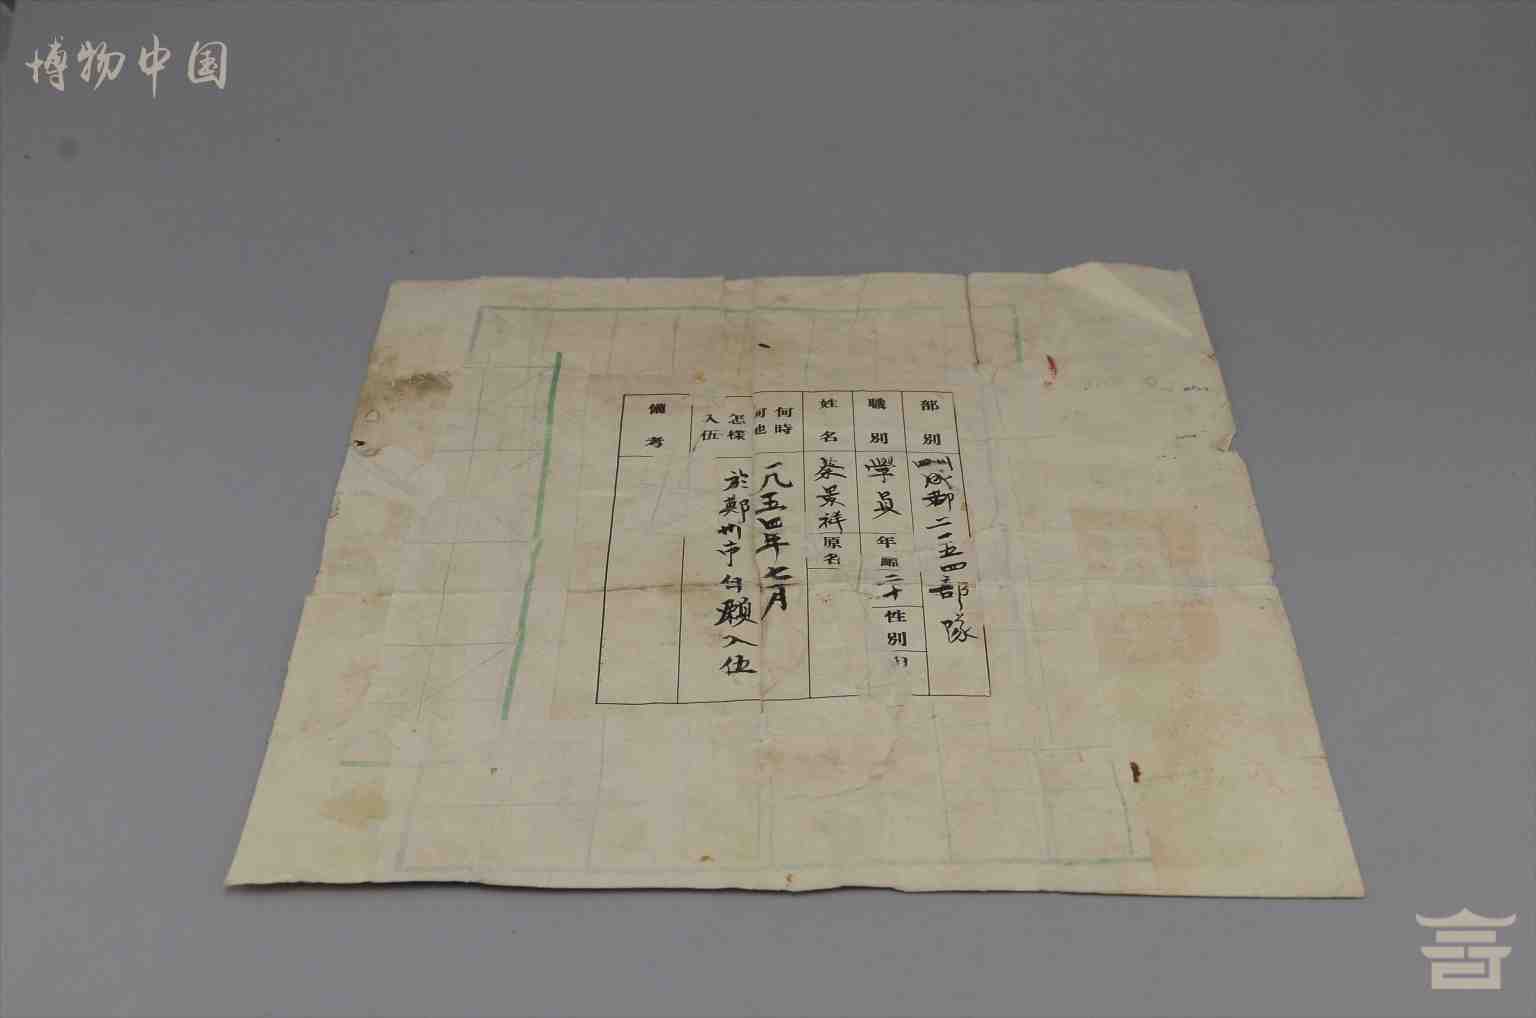 博物中国
部別 四川成都二一五四部隊
職別 學員 年齡 二十 性別
姓名 蔡景祥 原名
何時何地 一九五四年七月
怎樣入伍 於鄭州市自願入伍
備考